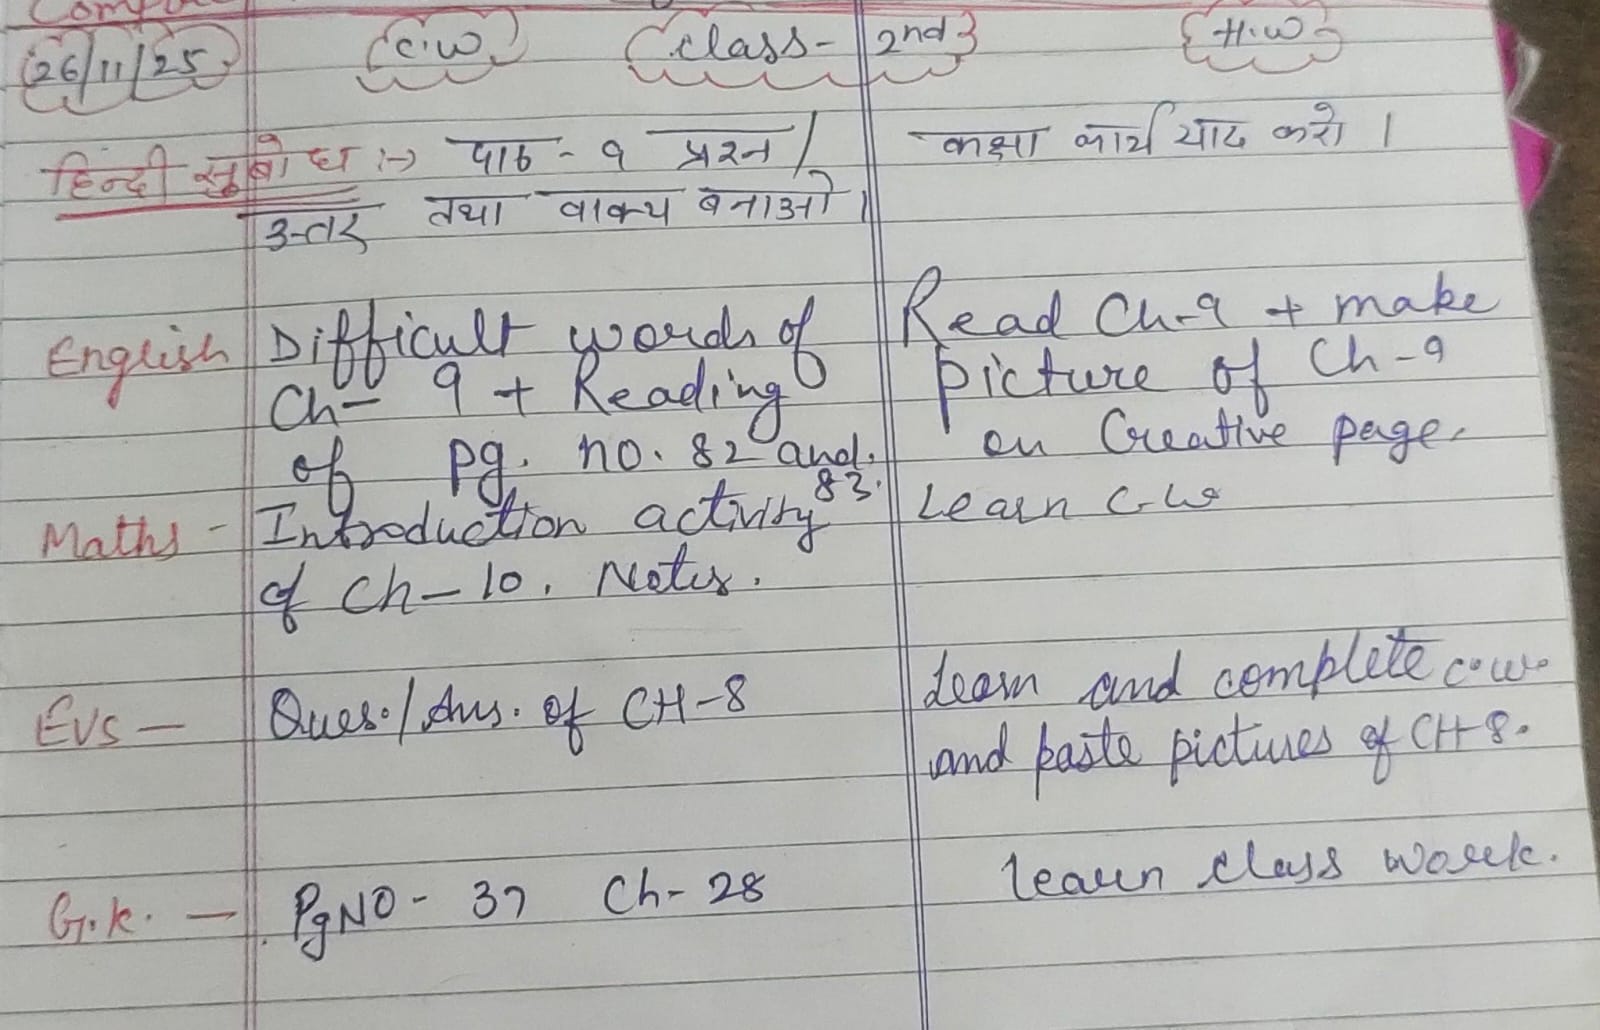 26/11/25 C.W Class- 2nd H.W
हिन्दी सुबोध :-> पाठ - ९ प्रश्न / कक्षा कार्य याद करो ।
उत्तर तथा वाक्य बनाओ ।
English Difficult words of Read Ch-9 + make
Ch- 9 + Reading picture of Ch-9
of pg. no. 82 and on Creative page.
83.
Maths - Introduction activity Learn C.W
of Ch-10. Notes.
Evs - Ques./Ans. of CH-8 Learn and complete c.w.
and paste pictures of CH-8.
G.k. - PgNO- 37 Ch- 28 learn class work.